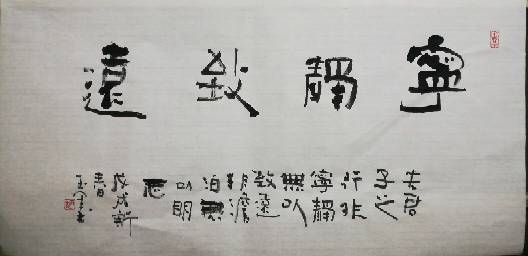 寧靜致遠
夫君
子之
行非
寧靜
無以
致遠
非澹
泊無
以明
志
戊戌新
春